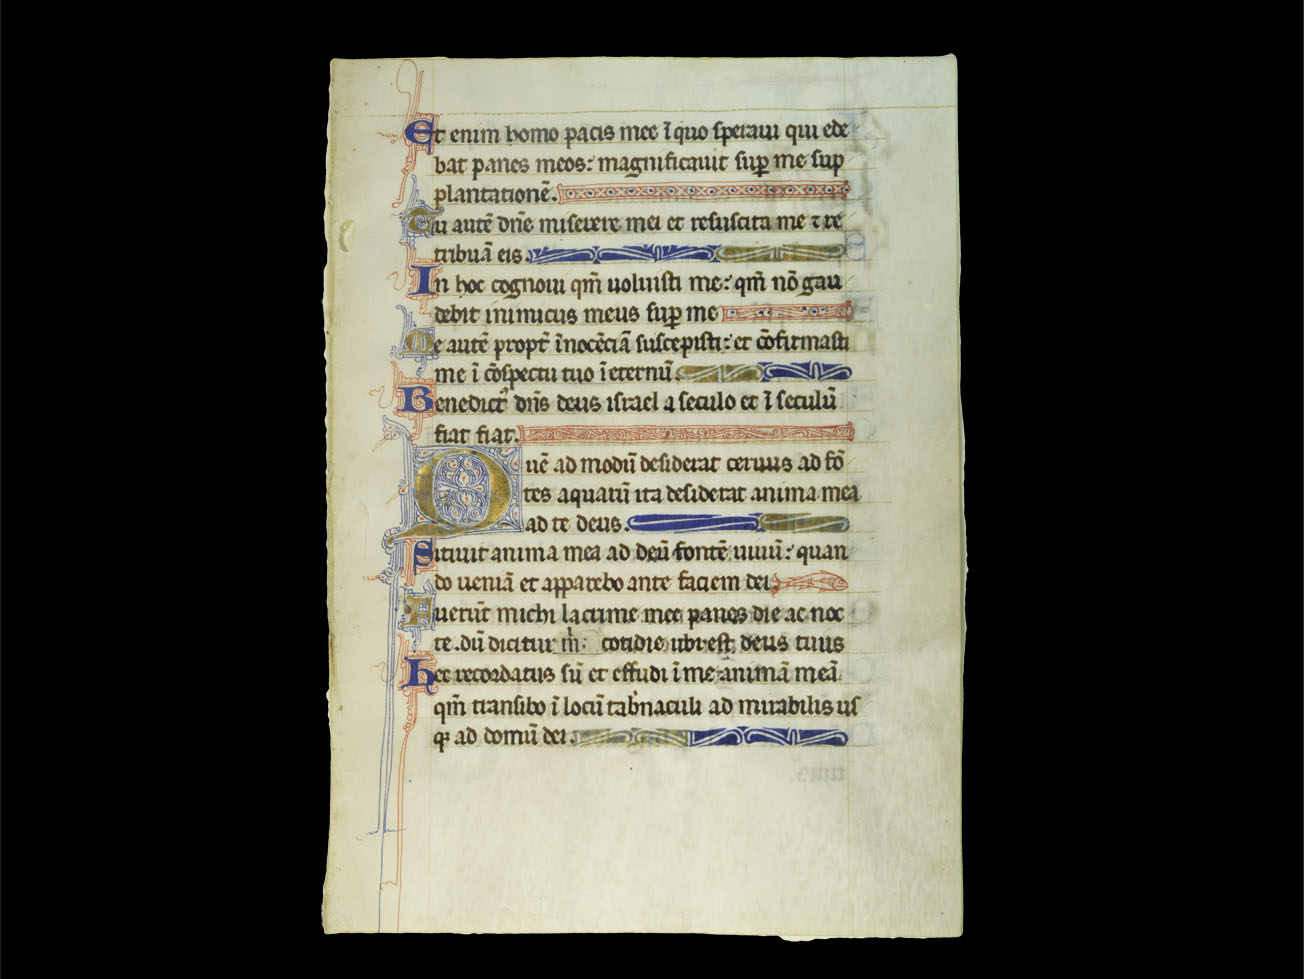 Et enim homo pacis mee ī quo speraui qui ede
bat panes meos: magnificauit suꝑ me sup
plantationē.
Tu autē dn̄e miserere mei et resuscita me ⁊ re
tribuā eis.
In hoc cognoui qm̄ uoluisti me: qm̄ nō gau
debit inimicus meus suꝑ me
Me autē propt̄ īnocēciā suscepisti: et cōfirmasti
me ī cōspectu tuo ī eternū.
Benedict᷒ dn̄s deus israel a seculo et ī seculū
fiat fiat.
Quē ad modū desiderat ceruus ad fō
tes aquarū ita desiderat anima mea
ad te deus.
Sitiuit anima mea ad deū fontē uiuū: quan
do ueniā et apparebo ante faciem dei
Fuerūt michi lacrime mee panes die ac noc
te. dū dicitur m̄ cotidie ubi est deus tuus
Hec recordatus sū et effudi ī me animā meā
qm̄ transibo ī locū tab̄naculi ad mirabilis us
qꝫ ad domū dei.